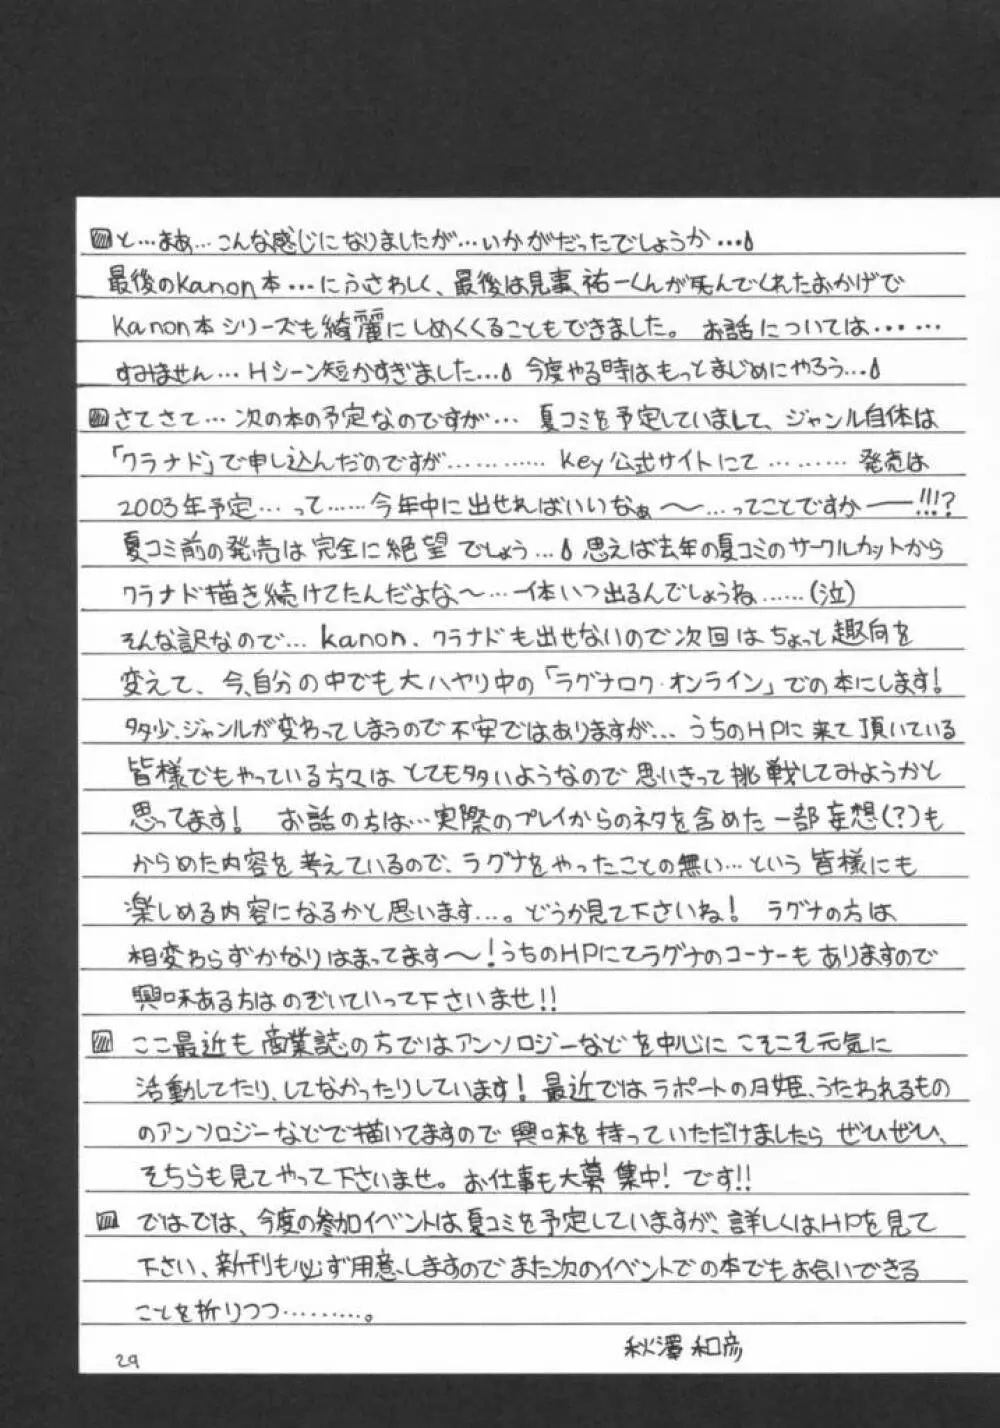 と…まぁ…こんな感じになりましたが…いかがだったでしょうか…
最後のkanon本…にふさわしく、最後は見事、祐一くんが死んでくれたおかげで
kanon本シリーズも綺麗にしめくくることもできました。お話については……
すみません…Hシーン短かすぎました… 今度やる時はもっとまじめにやろう…
さてさて…次の本の予定なのですが… 夏コミを予定していまして、ジャンル自体は
「クラナド」で申し込んだのですが………… Key公式サイトにて……… 発売は
2003年予定…って……今年中に出せればいいなぁ〜…ってことですかー!!!?
夏コミ前の発売は完全に絶望でしょう… 思えば去年の夏コミのサークルカットから
クラナド描き続けてたんだよな〜…一体いつ出るんでしょうね……(泣)
そんな訳なので…kanon、クラナドも出せないので次回はちょっと趣向を
変えて、今、自分の中でも大ハヤリ中の「ラグナロク・オンライン」での本にします!
多少、ジャンルが変わってしまうので不安ではありますが… うちのHPに来て頂いている
皆様でもやっている方々はとても多いようなので思いきって挑戦してみようかと
思ってます! お話の方は…実際のプレイからのネタを含めた一部妄想(?)も
からめた内容を考えているので、ラグナをやったことの無い…という皆様にも
楽しめる内容になるかと思います…。どうか見て下さいね! ラグナの方は、
相変わらずかなりはまってます〜!うちのHPにてラグナのコーナーもありますので
興味ある方はのぞいていって下さいませ!!
ここ最近も商業誌の方ではアンソロジーなどを中心にこそこそ元気に
活動してたり、してなかったりしています! 最近では、ラポートの月姫、うたわれるもの
のアンソロジーなどで描いてますので興味を持っていただけましたらぜひぜひ、
そちらも見てやって下さいませ。お仕事も大募集中! です!!
ではでは、今度の参加イベントは夏コミを予定していますが、詳しくはHPを見て
下さい、新刊も必ず用意しますのでまた次のイベントでの本でもお会いできる
ことを祈りつつ………。
秋澤 和彦
29